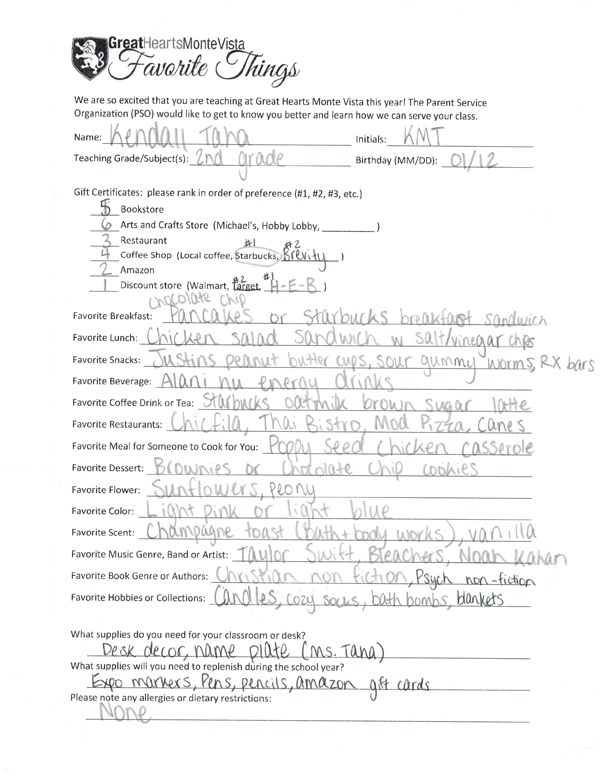 GreatHeartsMonteVista
Favorite Things
We are so excited that you are teaching at Great Hearts Monte Vista this year! The Parent Service
Organization (PSO) would like to get to know you better and learn how we can serve your class.
Name: Kendall Tana Initials: KMT
Teaching Grade/Subject(s): 2nd grade Birthday (MM/DD): 01/12
Gift Certificates: please rank in order of preference (#1, #2, #3, etc.)
5 Bookstore
6 Arts and Crafts Store (Michael's, Hobby Lobby, __________ )
3 Restaurant
#1 #2
4 Coffee Shop (Local coffee, Starbucks, Brevity )
2 Amazon
#2 #1
1 Discount store (Walmart, Target, H-E-B )
chocolate chip
Favorite Breakfast: Pancakes or Starbucks breakfast sandwich
Favorite Lunch: Chicken salad sandwich w salt/vinegar chps
Favorite Snacks: Justins peanut butter cups, sour gummy worms, RX bars
Favorite Beverage: Alani nu energy drinks
Favorite Coffee Drink or Tea: Starbucks oatmilk brown sugar latte
Favorite Restaurants: Chicfila, Thai Bistro, Mod Pizza, Canes
Favorite Meal for Someone to Cook for You: Poppy seed chicken casserole
Favorite Dessert: Brownies or chocolate chip cookies
Favorite Flower: Sunflowers, peony
Favorite Color: Light pink or light blue
Favorite Scent: Champagne toast (bath + body works), vanilla
Favorite Music Genre, Band or Artist: Taylor Swift, Bleachers, Noah Kahan
Favorite Book Genre or Authors: Christian non fiction, Psych non-fiction
Favorite Hobbies or Collections: Candles, cozy socks, bath bombs, blankets
What supplies do you need for your classroom or desk?
Desk decor, name plate (Ms. Tana)
What supplies will you need to replenish during the school year?
Expo markers, Pens, pencils, amazon gift cards
Please note any allergies or dietary restrictions:
None